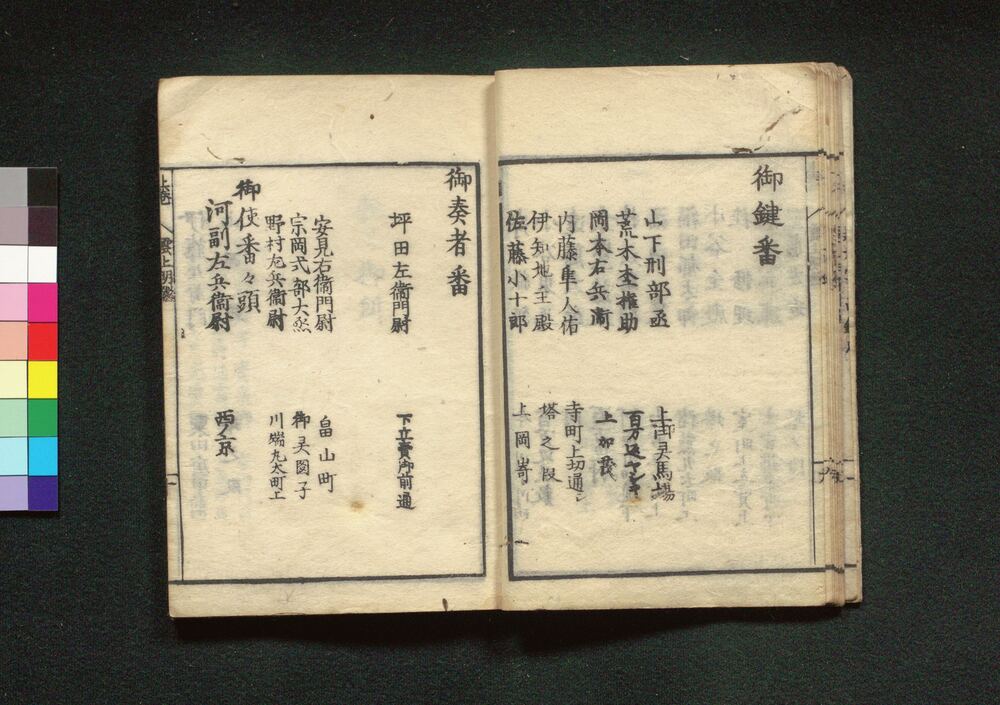 御鍵番
山下刑部丞 上御灵馬場
荒木杢権助 百万辺
岡本右兵衛 上加茂
内藤隼人佑 寺町上切通シ
伊知地主殿 塔之段
佐藤小十郎 上岡嵜
御奏者番
坪田左衞門尉 下立賣御前通
安見右衞門尉 畠山町
宗岡式部大丞 御灵図子
野村左兵衞尉 川端丸太町上
御使番々頭
河副左兵衞尉 西ノ京
雲上明鑑